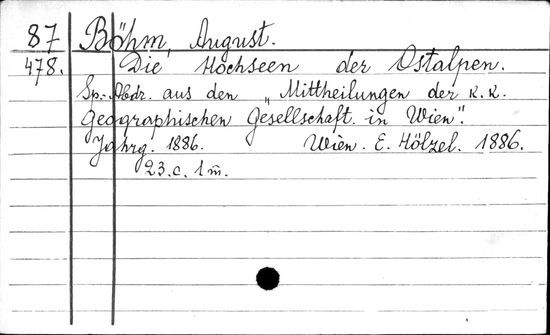 87 Böhm, August.
478. Die Hochseen der Ostalpen.
Sp.-Abdr. aus den „Mittheilungen der k.k.
Geographischen Gesellschaft in Wien".
Jahrg. 1886. Wien. E. Hölzel. 1886.
23.c. 1 m.